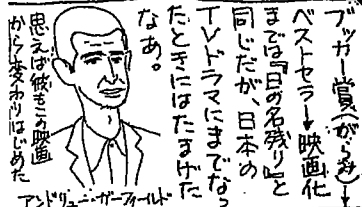 ブッカー賞(がらみ)→
ベストセラー→映画化
までは『日の名残り』と
同じだが、日本の
TVドラマにまでなっ
たときにはたまげた
なあ。
思えば彼もこの映画
から変わりはじめた
アンドリュー・ガーフィールド